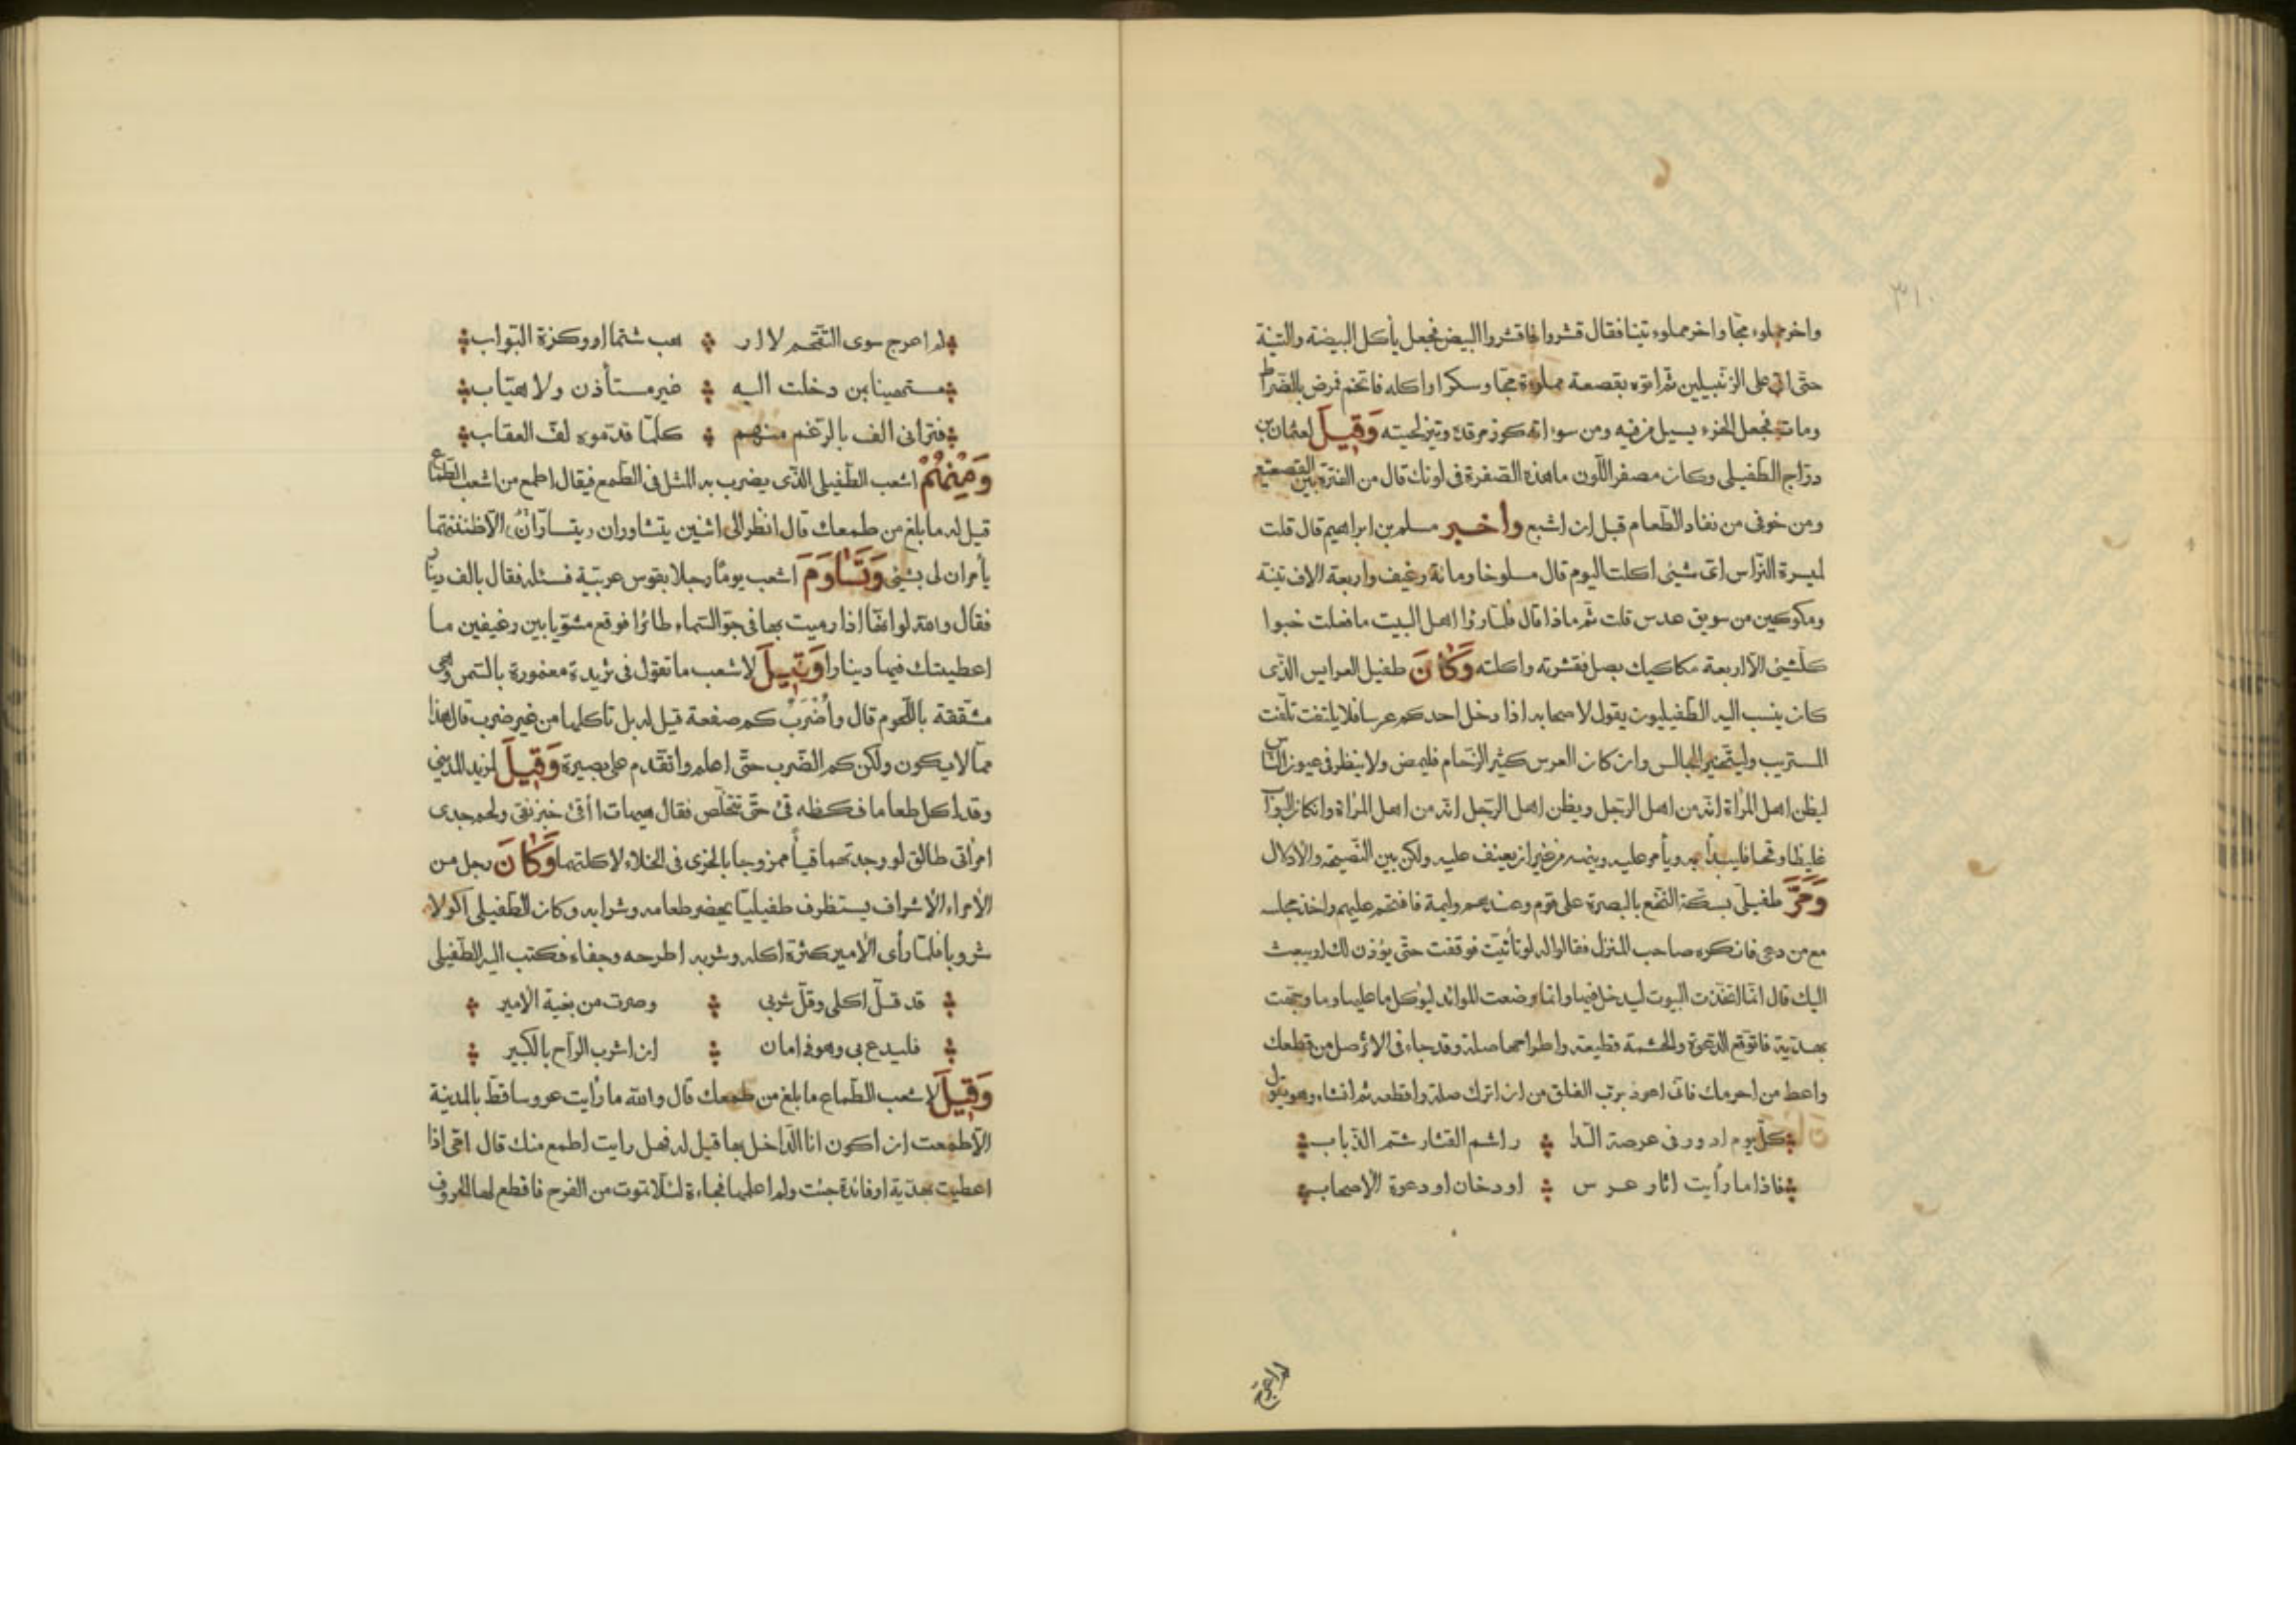 ٣١٠
واخر مملوء مخا واخر مملوء تينا فقال قشروا فاقشروا البيض فجعل يأكل البيضة والتينة
حتى اتى على الزنبيلين ثم اتوه بقصعة مملوءة مخا وسكرا واكله فاتخم فمرض بالضراط
ومات فجعل الخرء يسيل من فيه ومن سوءاته كوز مرقده وتيز لحيته وَقِيلَ لعثمان بن
دراج الطفيلى وكان مصفر اللون ما هذه الصفرة فى لونك قال من الفترة بين القصعتين
ومن خوفى من نفاد الطعام قبل ان اشبع واخبر مسلم بن ابراهيم قال قلت
لميسرة التراس اى شيئ اكلت اليوم قال مسلوخا ومائة رغيف واربعة الاف تينة
ومكوكين من سويق عدس قلت ثم ماذا قال فلما رؤا اهل البيت ما فعلت خبوا
كلشيئ الا اربعة مكاكيك بصل فقشرته واكلته وَكَانَ طفيل العرايس الذى
كان ينسب اليه الطفيليون يقول لاصحابه اذا دخل احدكم عرسا فلا يلتفت تلفت
المستريب وليتخير المجالس وان كان العرس كثير الزحام فليمض ولا ينظر فى عيون الناس
ليظن اهل المرأة انه من اهل الرجل ويظن اهل الرجل انه من اهل المرأة وان كان البواب
غليظا وقحا فليبدأ به ويأمر عليه وينهه من غير ان يعنف عليه ولكن بين النصيحة والادلال
وَمَرَّ طفيلى بسكة النخع بالبصرة على قوم وعندهم وليمة فاقتحم عليهم واخذ مجلسه
مع من دعى فانكره صاحب المنزل فقالوا له لو تأنيت فوقفت حتى يؤذن لك او يبعث
اليك قال انما اتخذت البيوت ليدخل فيها وانما وضعت الموائد ليؤكل ما عليها وما وجهت
بهدية فاتوقع الدعوة والحشمة قطيعة واطراحها صلة وقد جاء فى الاثر صل من قطعك
واعط من احرمك فانى اعوذ برب الفلق من ان اترك صلة واقطعه ثم انشاء وهو يقول
كل يوم ادور فى عرصة الدا ر اشم القتار شتم الذباب
فاذا ما رأيت اثار عرس او دخان او دعوة الاصحاب
لم اعرج سوى التقحم لا ار هب شتما او وكزة البواب
مستهينا بمن دخلت اليه غير مستأذن ولا هيّاب
فترانى الف بالرغم منهم كلما قدموه لف العقاب
وَمِنْهُمْ اشعب الطفيلى الذى يضرب به المثل فى الطمع فيقال اطمع من اشعب الطماع
قيل له ما بلغ من طمعك قال انظر الى اثنين يتشاوران ويتساران الا ظننتهما
يأمران لى بشيئ وَتَسَاوَمَ اشعب يوما رجلا بقوس عربية فسئله فقال بالف دينار
فقال والله لو انها اذا رميت بها فى جو السماء طائرا فوقع مشويا بين رغيفين ما
اعطيتك فيها دينارا وَقِيلَ لاشعب ما تقول فى ثريدة مغمورة بالسمن وهى
مشققة باللحوم قال وأُضْرَبُ كم صفعة قيل له بل تاكلها من غير ضرب قال هذا
مما لا يكون ولكن كم الضرب حتى اعلم واتقدم على بصيرة وَقِيلَ لمزيد المدينى
وقد اكل طعاما فكظه قئ حتى تتخلص فقال هيهات ا أقئ خبز نقى ولحم جدى
امرأتى طالق لو وجدتهما قيأ ممزوجا بالخرى فى الخلاء لاكلتهما وَكَانَ رجل من
الأمراء الأشراف يستظرف طفيليا يحضر طعامه وشرابه وكان الطفيلى اكولا
شروبا فلما رأى الأمير كثرة اكله وشربه اطرحه وجفاه فكتب اليه الطفيلى
قد قل اكلى وقل شربى وصرت من بغية الامير
فليدع بى وهو فى امان ان اشرب الراح بالكبير
وَقِيلَ لاشعب الطماع ما بلغ من طمعك قال والله ما رأيت عروسا قط بالمدينة
الا طمعت ان اكون انا الداخل بها قيل له فهل رايت اطمع منك قال امى اذا
اعطيت بهدية او فائدة جئت ولم اعلمها فجاءة لئلا تموت من الفرح فاقطع لها الحروف
لم اعرج